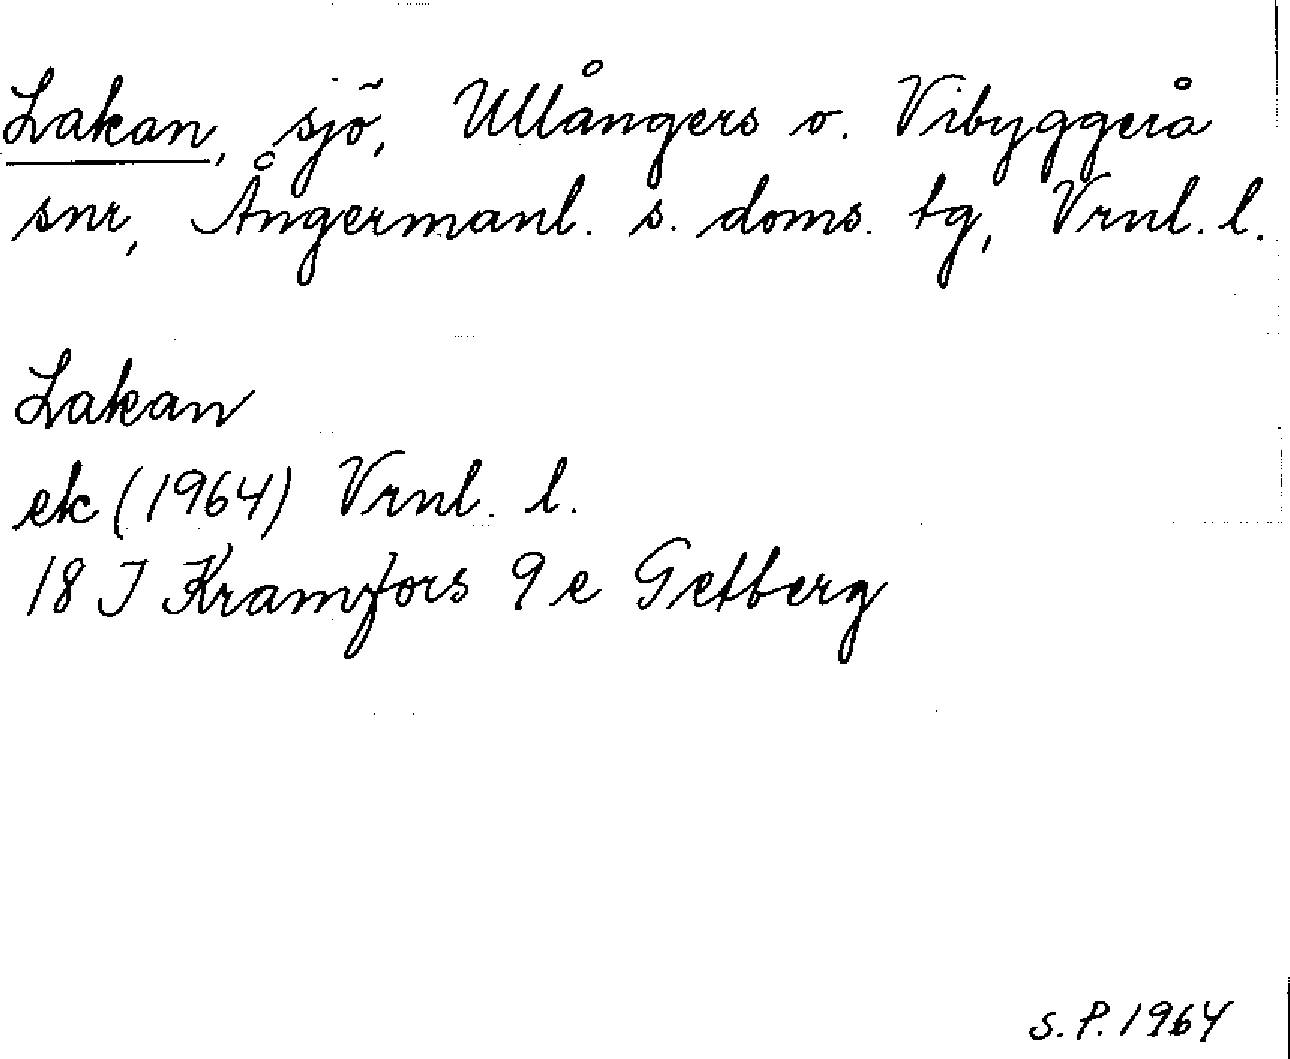 Lakan, sjö, Ullångers o. Vibyggerå
snr, Ångermanl. s. doms. tg, Vrnl. l.
Lakan
ek (1964) Vrnl. l.
18 J Kramfors 9 e Getberg
S. P. 1964